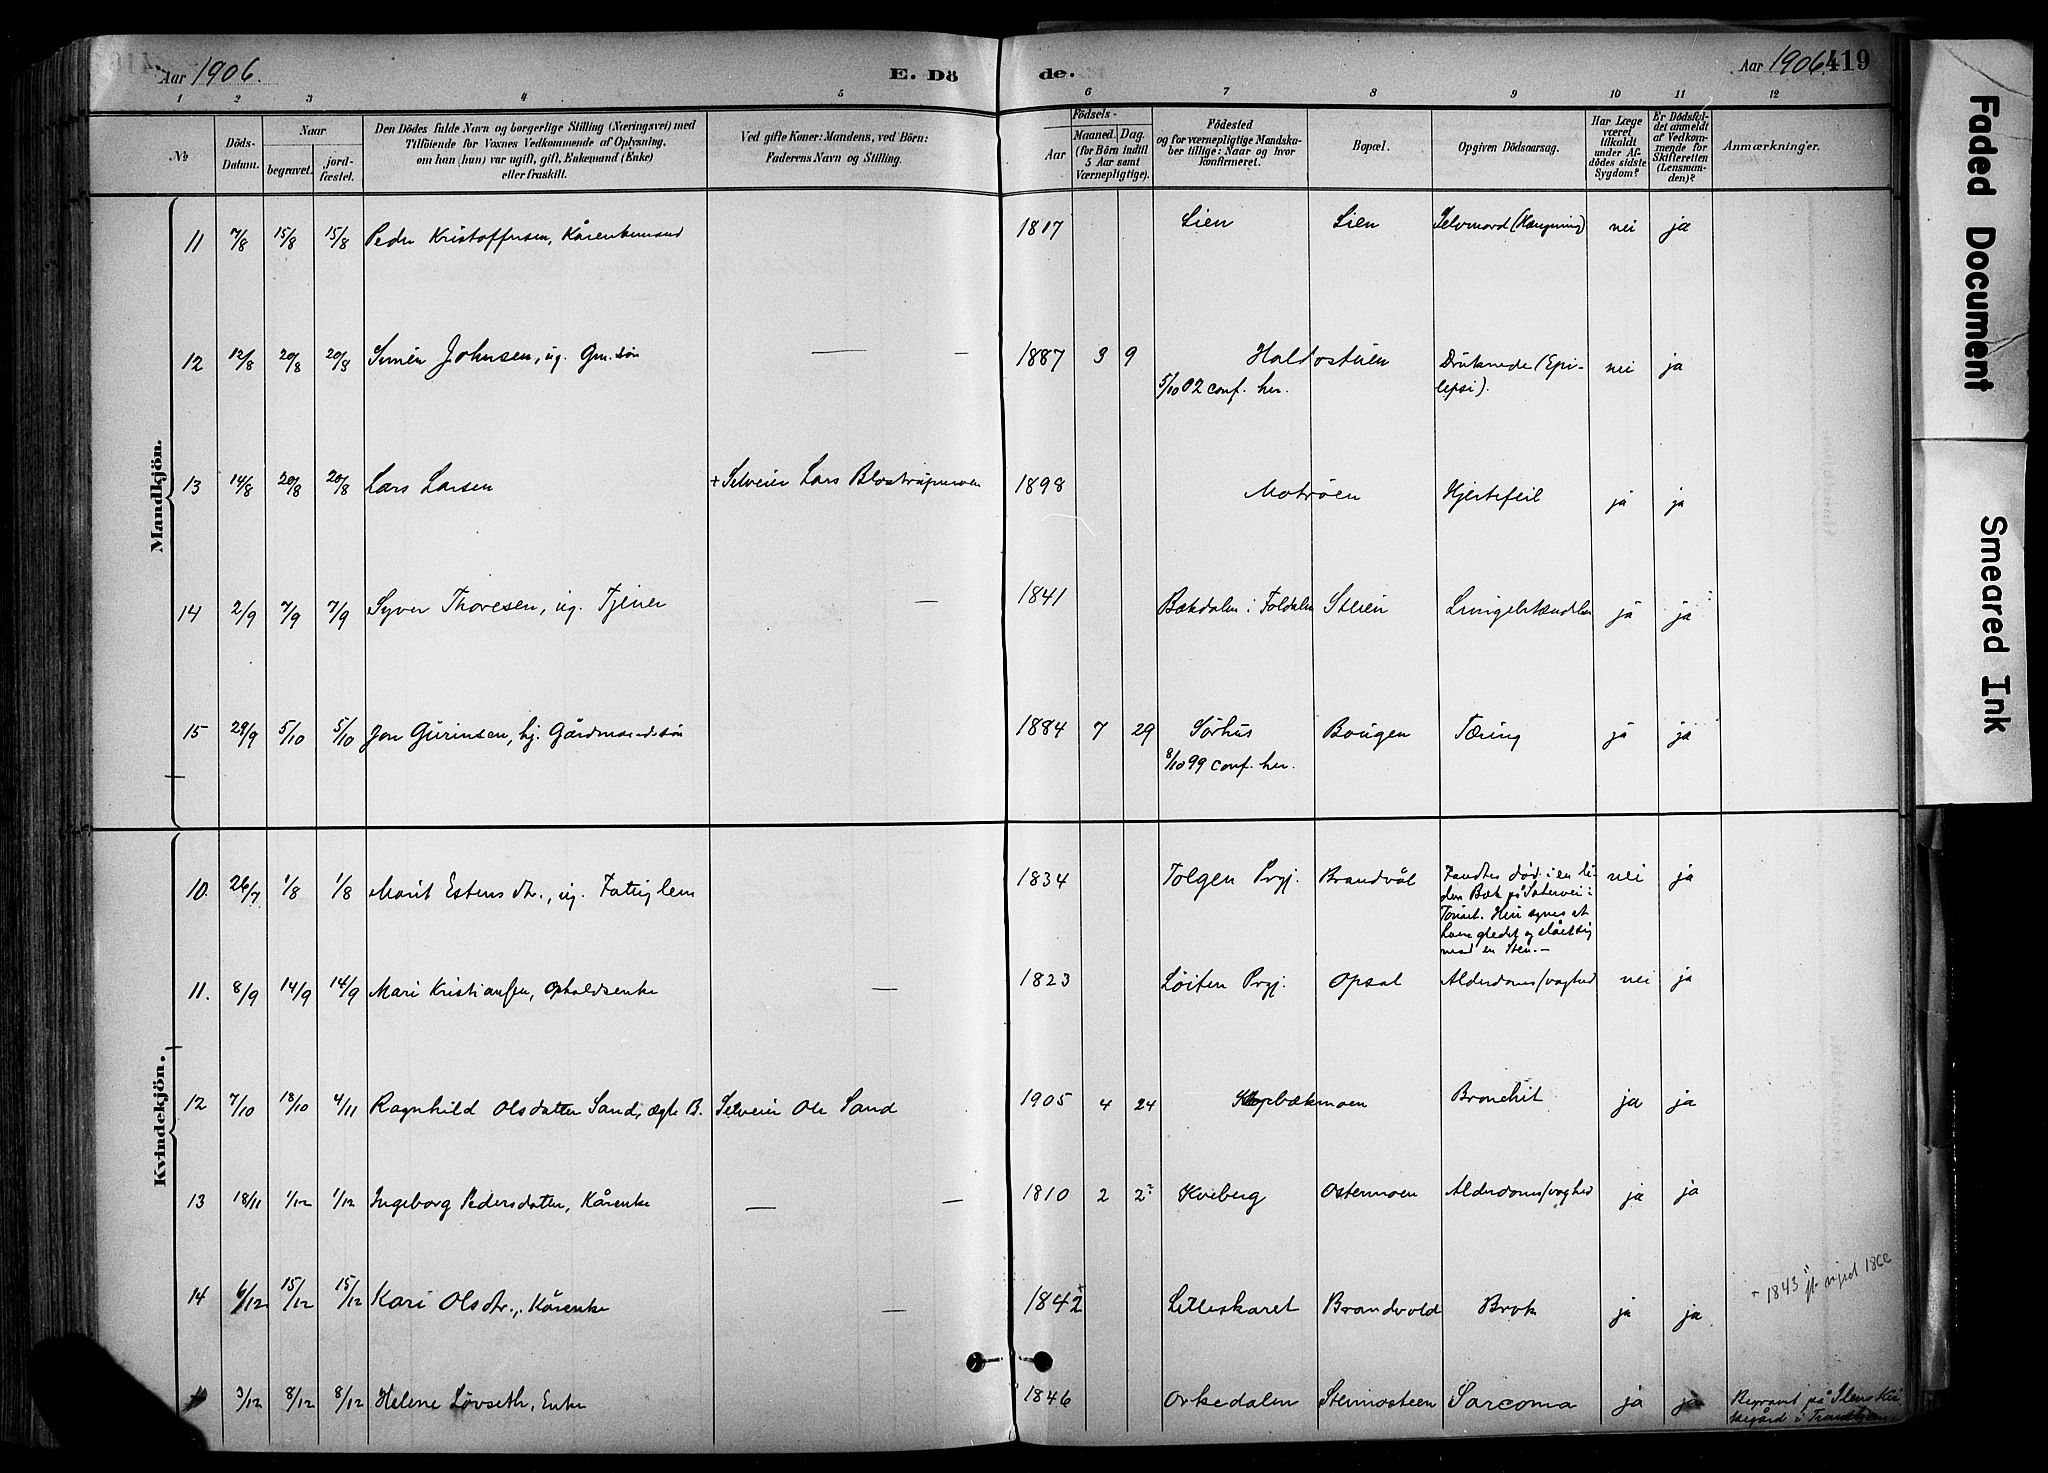 Aar 1906. E. Dö de. Aar 1906. 419
1 2 3 4 5 6 7 8 9 10 11 12
No
Döds-Datum.
Naar
begravet.
jord-fæstet.
Den Dödes fulde Navn og borgerlige Stilling (Næringsvei) med
Tilföiende for Voxnes Vedkommende af Oplysning,
om han (hun) var ugift, gift, Enkemand (Enke)
eller fraskilt.
Ved gifte Koner: Mandens, ved Börn:
Faderens Navn og Stilling.
Födsels-
Aar
Maaned. Dag.
(for Börn indtil
5 Aar samt
Værnepligtige).
Födested
og for værnepligtige Mandska-
ber tillige: Naar og hvor
konfirmeret.
Bopæl.
Opgiven Dödsaarsag.
Har Læge
været
tilkaldt
under Af-
dödes sidste
Sygdom?
Er Dödsfal-
det anmeldt
af Vedkom-
mende for
Skifteretten
(Lensman-
den)?
Anmærkninger.
Mandkjön.
11 7/8 15/8 15/8 Peder Kristoffersen, Kårenkemand 1817 Lien Lien Selvmord (Hængning) nei ja
12 12/8 20/8 20/8 Simen Johnsen, ug. Gm.søn — — 1887 3 9 Haldostuen Druknede (Epi-
lepsi). nei ja
5/10 02 conf. her.
13 14/8 20/8 20/8 Lars Larsen + Selveier Lars 1898 Motrøen Hjertefeil ja ja
14 2/9 7/9 7/9 Syver Thoresen, ug. Tjener — 1841 Bækdalen i Foldalen Steien ja ja
15 29/9 5/10 5/10 Jon Gurinsen, Gårdmandssøn 1884 7 29 Sørhus Bougen Tæring ja ja
8/10 99 conf. her.
Kvindekjön.
10 26/7 1/8 1/8 Marit Estensdtr., ug. Fattiglem 1834 Tolgen Prgj. Brandvål Fandtes død i en li-
den Bæk på Sætervei i
Tonset. Hun synes at
have gledet og slået sig
mod en Sten. — nei ja
11. 8/9 14/9 14/9 Mari Kristiansen, Opholdsenke — 1823 Løiten Prgj. Opsal Alderdomssvaghed nei ja
12 7/10 18/10 4/11 Ragnhild Olsdatter Sand, ægte B. Selveier Ole Sand 1905 4 24 Bronchit ja ja
13 18/11 1/12 1/12 Ingeborg Pedersdatter, Kårenke — — 1810 2 2 Kviberg Ostermoen Alderdomssvaghed ja ja
14 6/12 15/12 15/12 Kari Olsdtr., Kårenke — 1842 Litleskaret Brandvold Brok ja ja
3/12 8/12 8/12 Helene Løvseth, Enke 1846 Orkedalen Steimosteen Sarcoma ja ja Begravet på Ilens Kir-
kegård i Trondhjem
Faded Document
Smeared Ink